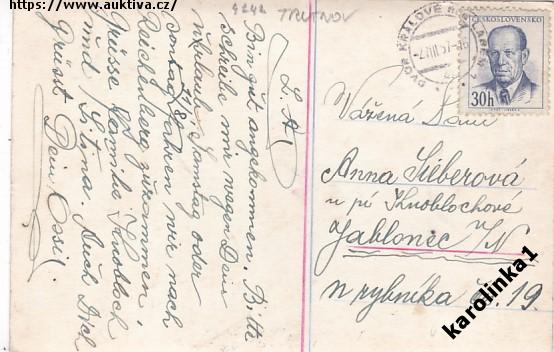 https://www.aukticva.cz/
4242 TRUTNOV
L. A.
Bin gut angekommen. Bitte
schreibe mir wegen Dein
Urlaub. Samstag oder
Sontag fahren wir nach
Reichenberg zusammen.
Grüsse Familie Knobloch
und Auch Dich
Grüsst Dein Ossi.
DVŮR KRÁLOVÉ
ČESKOSLOVENSKO
30h
Vážená Paní
Anna Sieberová
u pí Knoblochové
Jablonec /N
n rybníka č. 19.
karolinka1